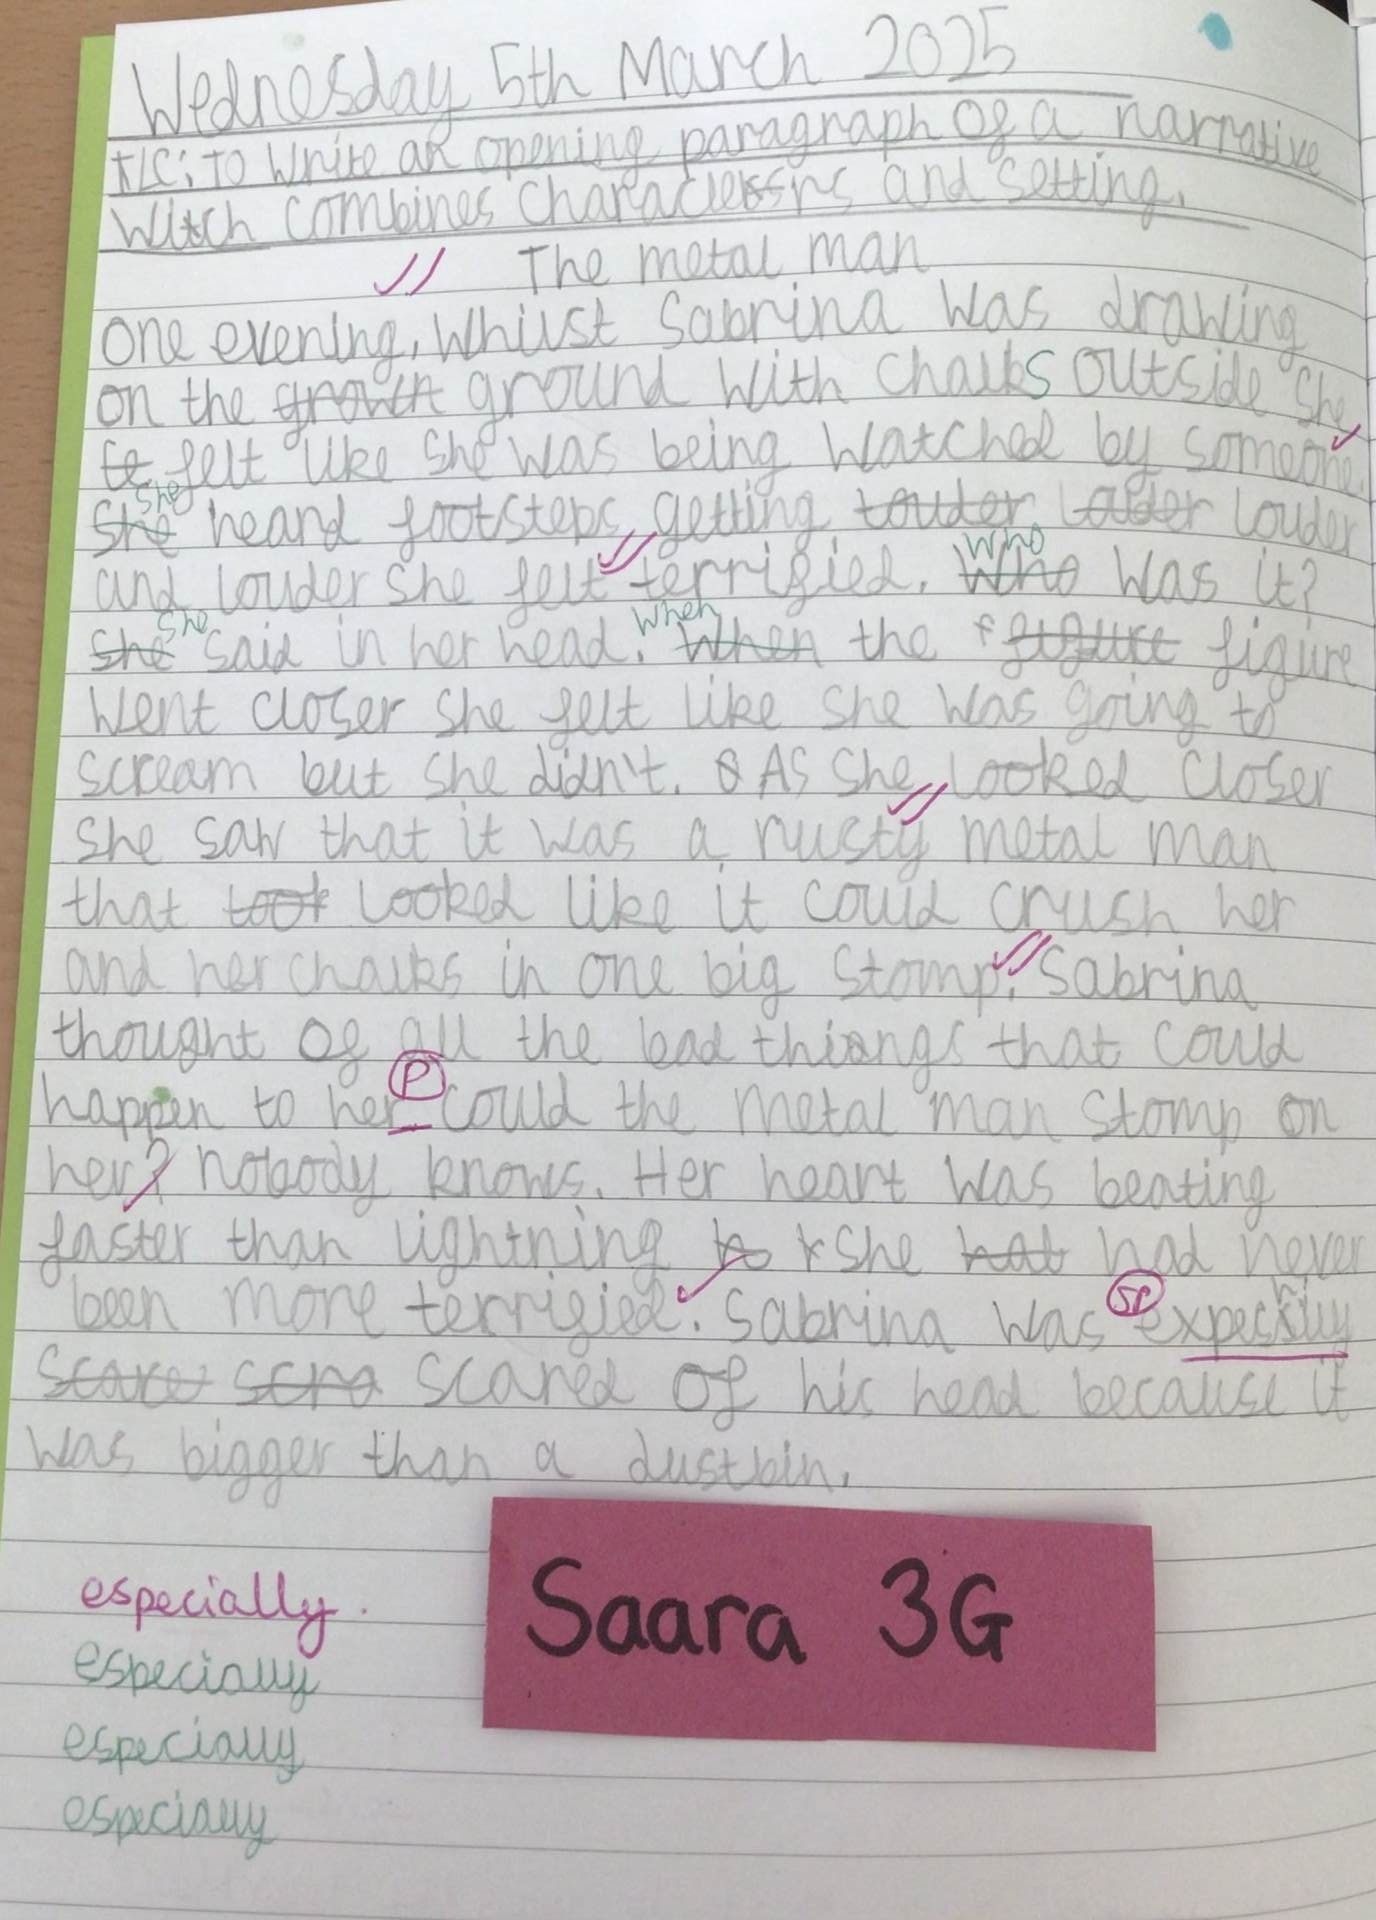 Wednesday 5th March 2025
to write an opening paragraph of a narrative
witch combines characters and setting.
The metal man
One evening, whilst Sabrina was drawing
on the grown ground with chalks outside she
te felt like she was being watched by someone.
She
She heard footsteps getting touder louder louder
and louder she felt terrified. Who Who was it?
She
She said in her head. When When the f figure figure
went closer she felt like she was going to
scream but she didn't. As she looked closer
she saw that it was a rusty metal man
that took looked like it could crush her
and her chalks in one big stomp! Sabrina
thought of all the bad things that could
P
happen to her could the metal man stomp on
her? nobody knows. Her heart was beating
faster than lightning she hat had never
sp
been more terrified. Sabrina was
scare scra scared of his head because it
was bigger than a dustbin.
especially.
especially
especially
especially
Saara 3G